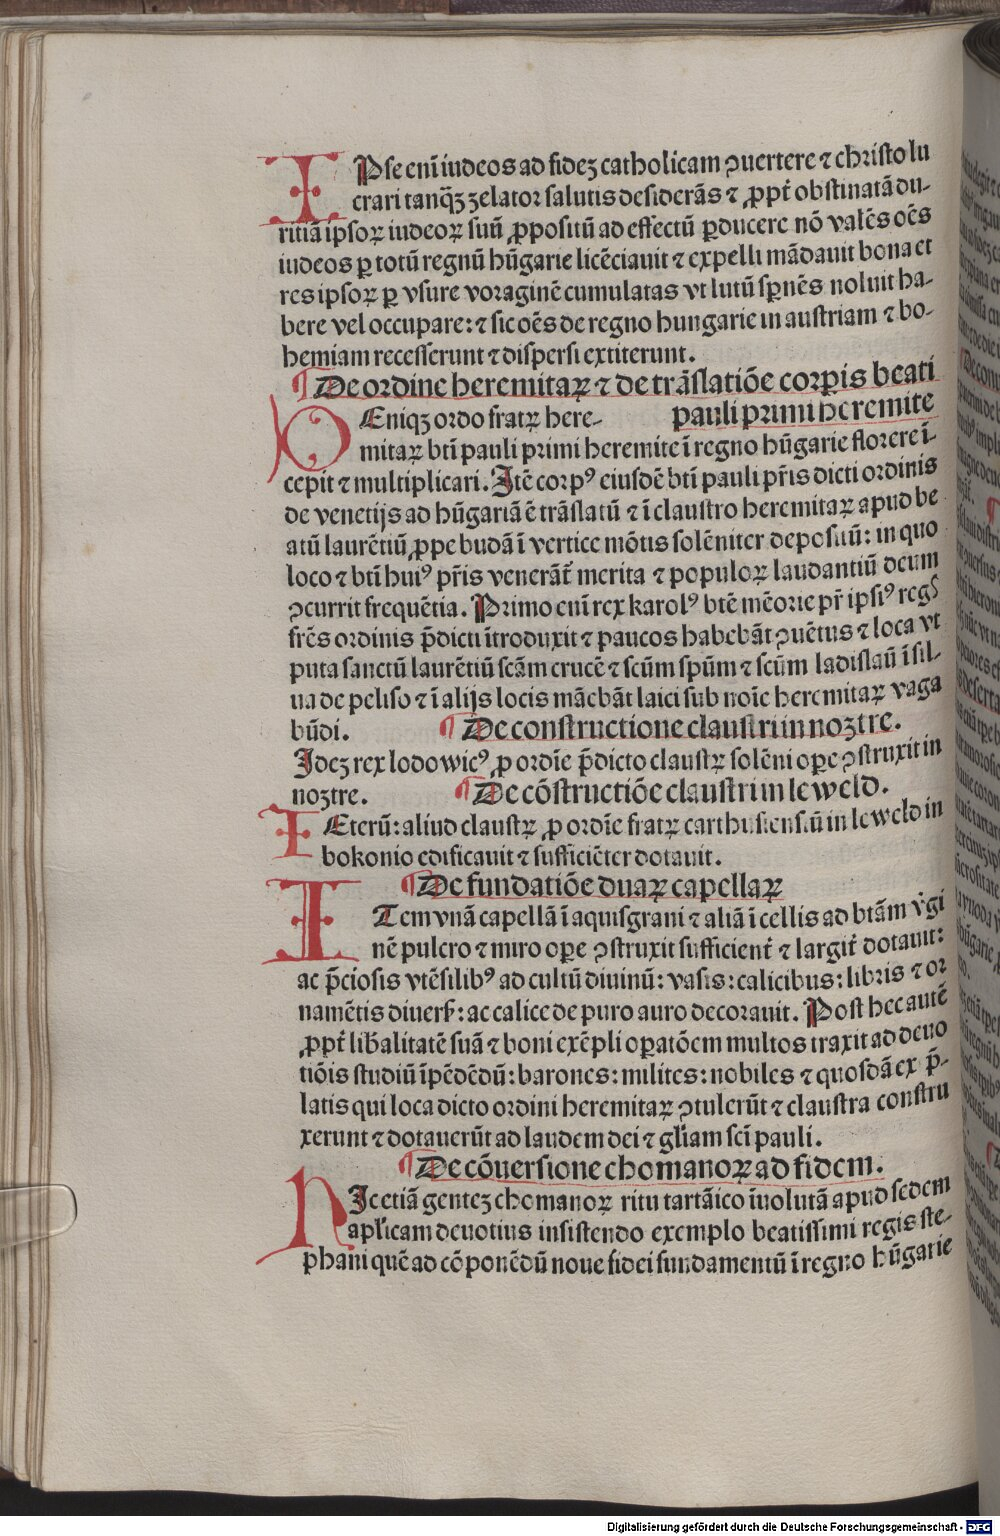 IPse eni iudeos ad fidez catholicam ꝯuertere ⁊ christo lu
crari tanq̃ʒ zelator salutis desiderãs ⁊ ꝓpt̃ obstinatã du-
ritiã ipsoꝝ iudeoꝝ suũ ꝓpositũ ad effectũ ꝑducere nõ valẽs oẽs
iudeos ꝑ totũ regnũ hũgarie licẽciauit ⁊ expelli mãdauit bona et
res ipsoꝝ ꝑ vsure voraginẽ cumulatas vt lutũ sp̃nẽs noluit ha-
bere vel occupare: ⁊ sic oẽs de regno hungarie in austriam ⁊ bo-
hemiam recesserunt ⁊ dispersi extiterunt.
¶ De ordine heremitaꝝ ⁊ de trãslatiõe corꝑis beati
pauli primi heremite
DEniqʒ ordo fratꝝ here-
mitaꝝ bt̃i pauli primi heremite ĩ regno hũgarie florere ĩ-
cepit ⁊ multiplicari. Itẽ corpꝰ eiusdẽ bt̃i pauli pr̃is dicti ordinis
de venetijs ad hũgariã ẽ trãslatũ ⁊ ĩ claustro heremitaꝝ apud be
atũ laurẽtiũ ꝓpe budã ĩ vertice mõtis solẽniter depositũ: in quo
loco ⁊ bt̃i huiꝰ pr̃is venerãt̃ merita ⁊ populoꝝ laudantiũ deum
ꝯcurrit frequẽtia. Primo eni rex karolꝰ btẽ mẽorie pr̃ ipsiꝰ regꝭ
frẽs ordinis p̃dicti ĩtroduxit ⁊ paucos habebãt ꝯuẽtus ⁊ loca vt
puta sanctũ laurẽtiũ scãm crucẽ ⁊ scũm spũm ⁊ scũm ladislaũ ĩ sil-
ua de peliso ⁊ ĩ alijs locis mãebãt laici sub noĩe heremitaꝝ vaga
bũdi. ¶ De constructione claustri in noztre.
Idez rex lodowicꝰ ꝓ ordĩe p̃dicto claustꝝ solẽni oꝑe ꝯstruxit in
noztre. ¶ De cõstructiõe claustri in leweld.
IEterũ: aliud claustꝝ ꝓ ordĩe fratꝝ carthusiensiũ in leweld in
bokonio edificauit ⁊ sufficiẽter dotauit.
¶ De fundatiõe duaꝝ capellaꝝ
ITem vnã capellã ĩ aquisgrani ⁊ aliã ĩ cellis ad btãm v̾gi
nẽ pulcro ⁊ miro oꝑe ꝯstruxit sufficient̃ ⁊ largit̃ dotauit:
ac p̃ciosis vtẽsilibꝰ ad cultũ diuinũ: vasis: calicibus: libris ⁊ or
namẽtis diuerẞ: ac calice de puro auro decorauit. Post hec autẽ
ꝓpt̃ lib̃alitatẽ suã ⁊ boni exẽpli oꝑatõem multos traxit ad deuo
tiõis studiũ ĩpẽdẽdũ: barones: milites: nobiles ⁊ quosdã ex p̃-
latis qui loca dicto ordini heremitaꝝ ꝯtulerũt ⁊ claustra constru
xerunt ⁊ dotauerũt ad laudem dei ⁊ gl̃iam sci pauli.
¶ De cõuersione chomanoꝝ ad fidem.
HIc etiã gentez chomanoꝝ ritu tartãico ĩuolutã apud sedem
apl̃icam deuotius insistendo exemplo beatissimi regis ste-
phani quẽ ad cõponẽdũ noue fidei fundamentũ ĩ regno hũgarie
Digitalisierung gefördert durch die Deutsche Forschungsgemeinschaft - DFG